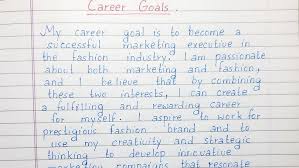 Career Goals.
My career goal is to become a
successful marketing executive in
the fashion industry. I am passionate
about both marketing and fashion,
and I believe that by combining
these two interests, I can create
a fulfilling and rewarding career
for myself. I aspire to work for
prestigious fashion brand and to
use my creativity and strategic
thinking to develop innovative
marketing campaigns that resonate